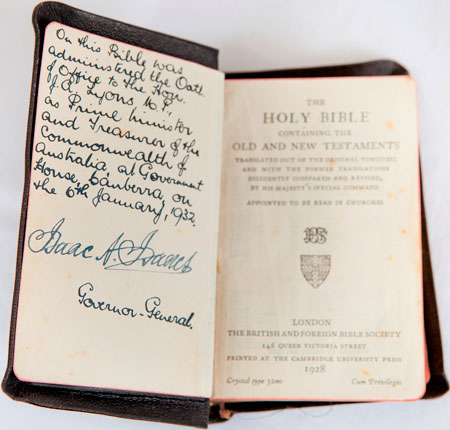 On this Bible was
administered the Oath
of Office to the Hon.
J. A. Lyons M.P.,
as Prime Minister
and Treasurer of the
Commonwealth of
Australia at Government
House, Canberra, on
the 6th January, 1932.
Isaac A. Isaacs
Governor-General.
THE
HOLY BIBLE
CONTAINING THE
OLD AND NEW TESTAMENTS
TRANSLATED OUT OF THE ORIGINAL TONGUES:
AND WITH THE FORMER TRANSLATIONS
DILIGENTLY COMPARED AND REVISED,
BY HIS MAJESTY'S SPECIAL COMMAND
APPOINTED TO BE READ IN CHURCHES
LONDON
THE BRITISH AND FOREIGN BIBLE SOCIETY
146 QUEEN VICTORIA STREET
PRINTED AT THE CAMBRIDGE UNIVERSITY PRESS
1928
Crystal type 32mo Cum Privilegio